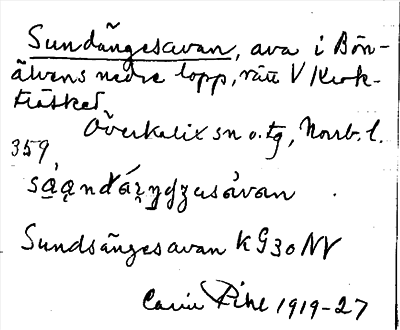 Sundängesavan, ava i Bön-
älvens nedre lopp, rätt V Krok-
träsket.
Överkalix sn o. tg, Norrb. l.
359
Sundsängesavan KG30NV
Carin Pihl 1919-27